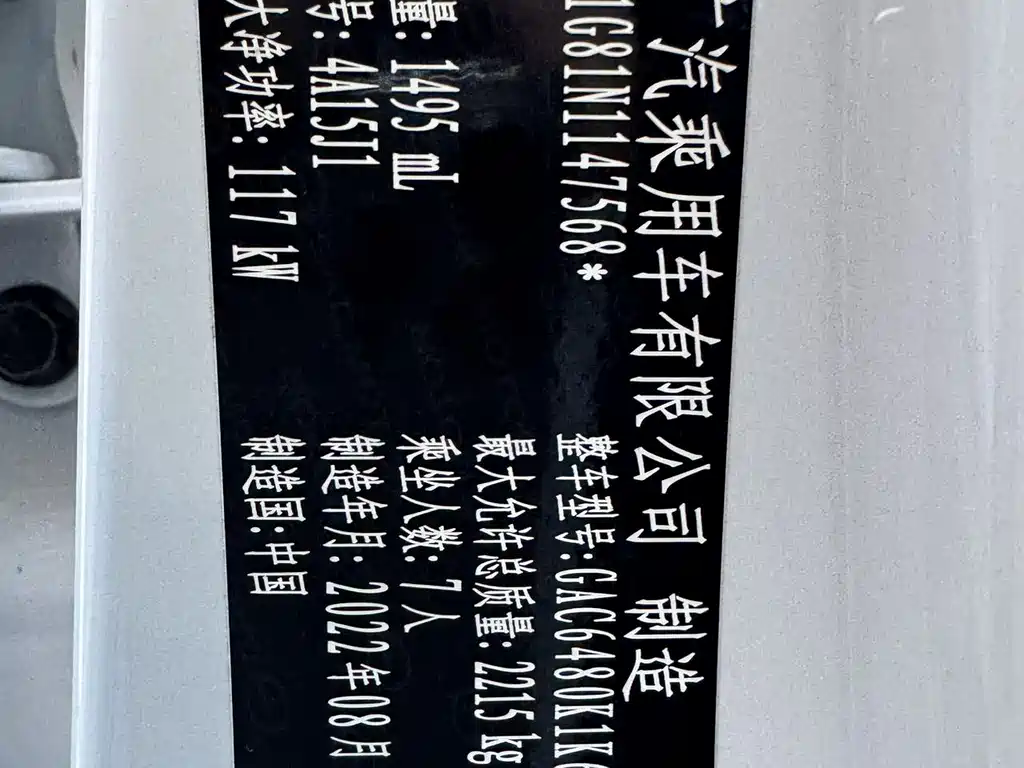 汽乘用车有限公司 制造
1G81N1147568*
整车型号:GAC6480K1K6
最大允许总质量: 2215 kg
量: 1495 mL
乘坐人数: 7人
号: 4A15J1
制造年月: 2022年08月
大净功率: 117 kW
制造国:中国